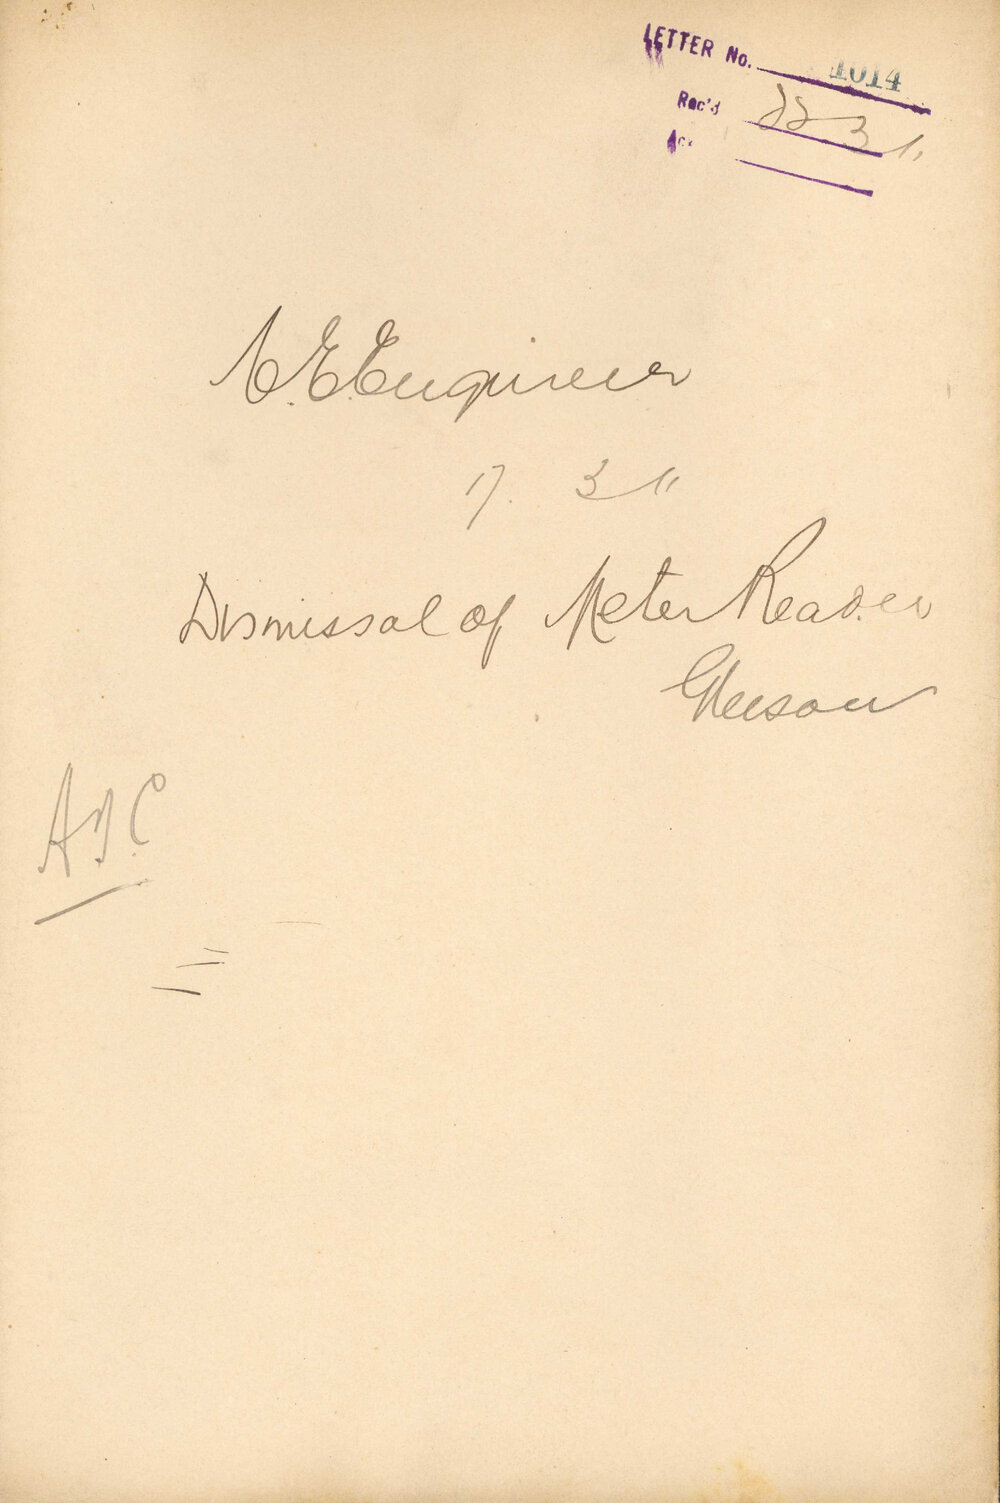 LETTER No. 1014
Rec'd 22 3 11
Ack
C.E.Engineer
17. 3 11
Dismissal of Meter Reader
Gleeson